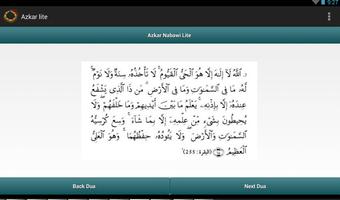 9:27
Azkar lite
Azkar Nabawi Lite
﴿ ٱللَّهُ لَآ إِلَٰهَ إِلَّا هُوَ ٱلْحَىُّ ٱلْقَيُّومُ ۚ لَا تَأْخُذُهُۥ سِنَةٌ وَلَا نَوْمٌ ۚ
لَّهُۥ مَا فِى ٱلسَّمَٰوَٰتِ وَمَا فِى ٱلْأَرْضِ ۗ مَن ذَا ٱلَّذِى يَشْفَعُ
عِندَهُۥٓ إِلَّا بِإِذْنِهِۦ ۚ يَعْلَمُ مَا بَيْنَ أَيْدِيهِمْ وَمَا خَلْفَهُمْ ۖ وَلَا
يُحِيطُونَ بِشَىْءٍ مِّنْ عِلْمِهِۦٓ إِلَّا بِمَا شَآءَ ۚ وَسِعَ كُرْسِيُّهُ
ٱلسَّمَٰوَٰتِ وَٱلْأَرْضَ ۖ وَلَا يَـُٔودُهُۥ حِفْظُهُمَا ۚ وَهُوَ ٱلْعَلِىُّ
ٱلْعَظِيمُ ﴾ (البقرة: 255)
Back Dua
Next Dua